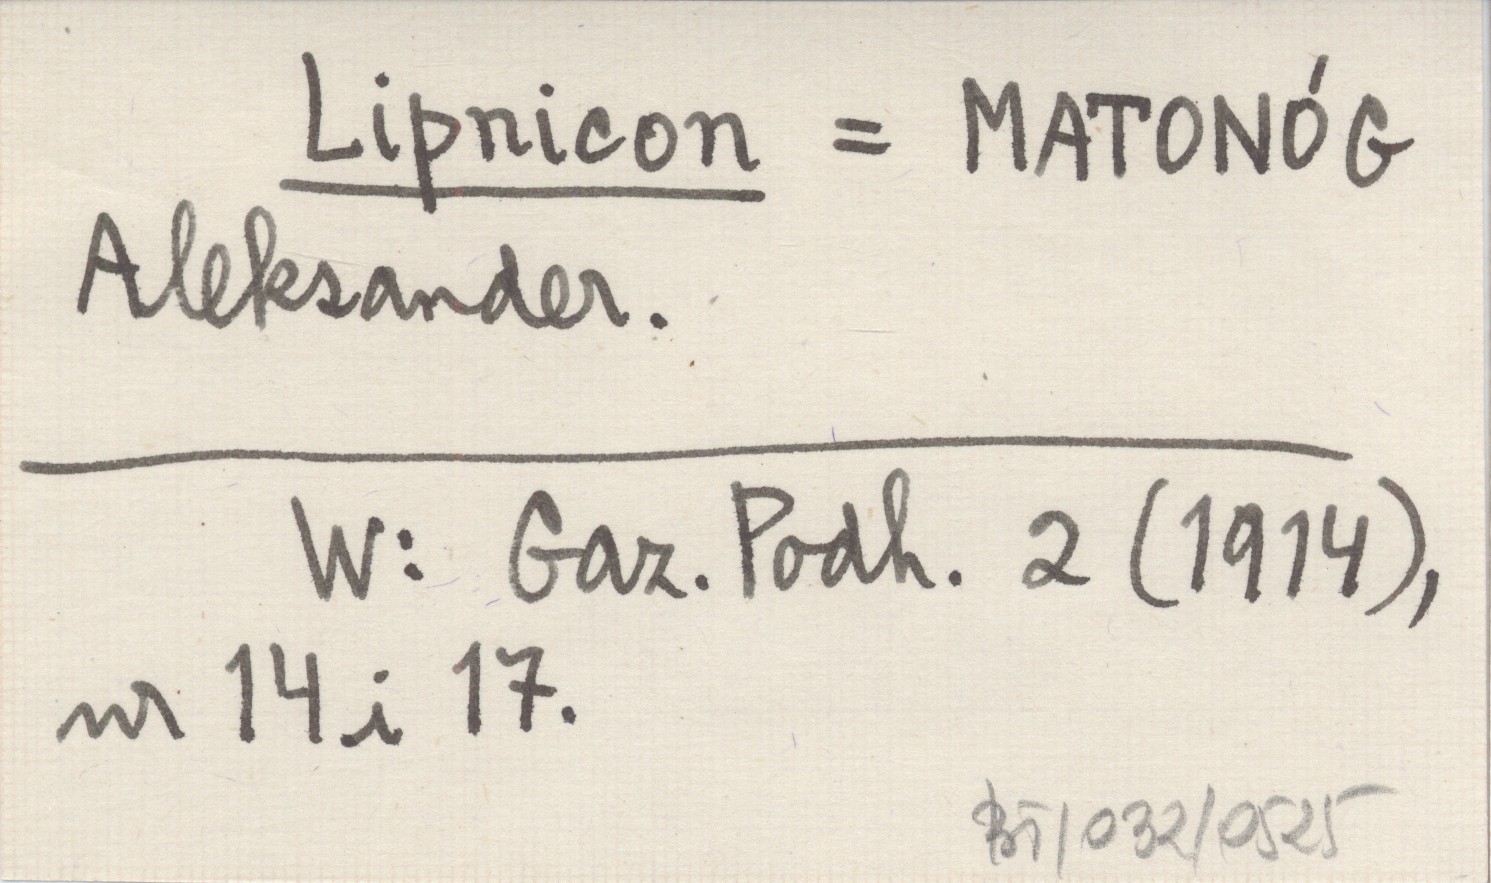 Lipnicon = MATONÓG
Aleksander.
W: Gaz. Podh. 2 (1914),
nr 14 i 17.
BT/032/0525